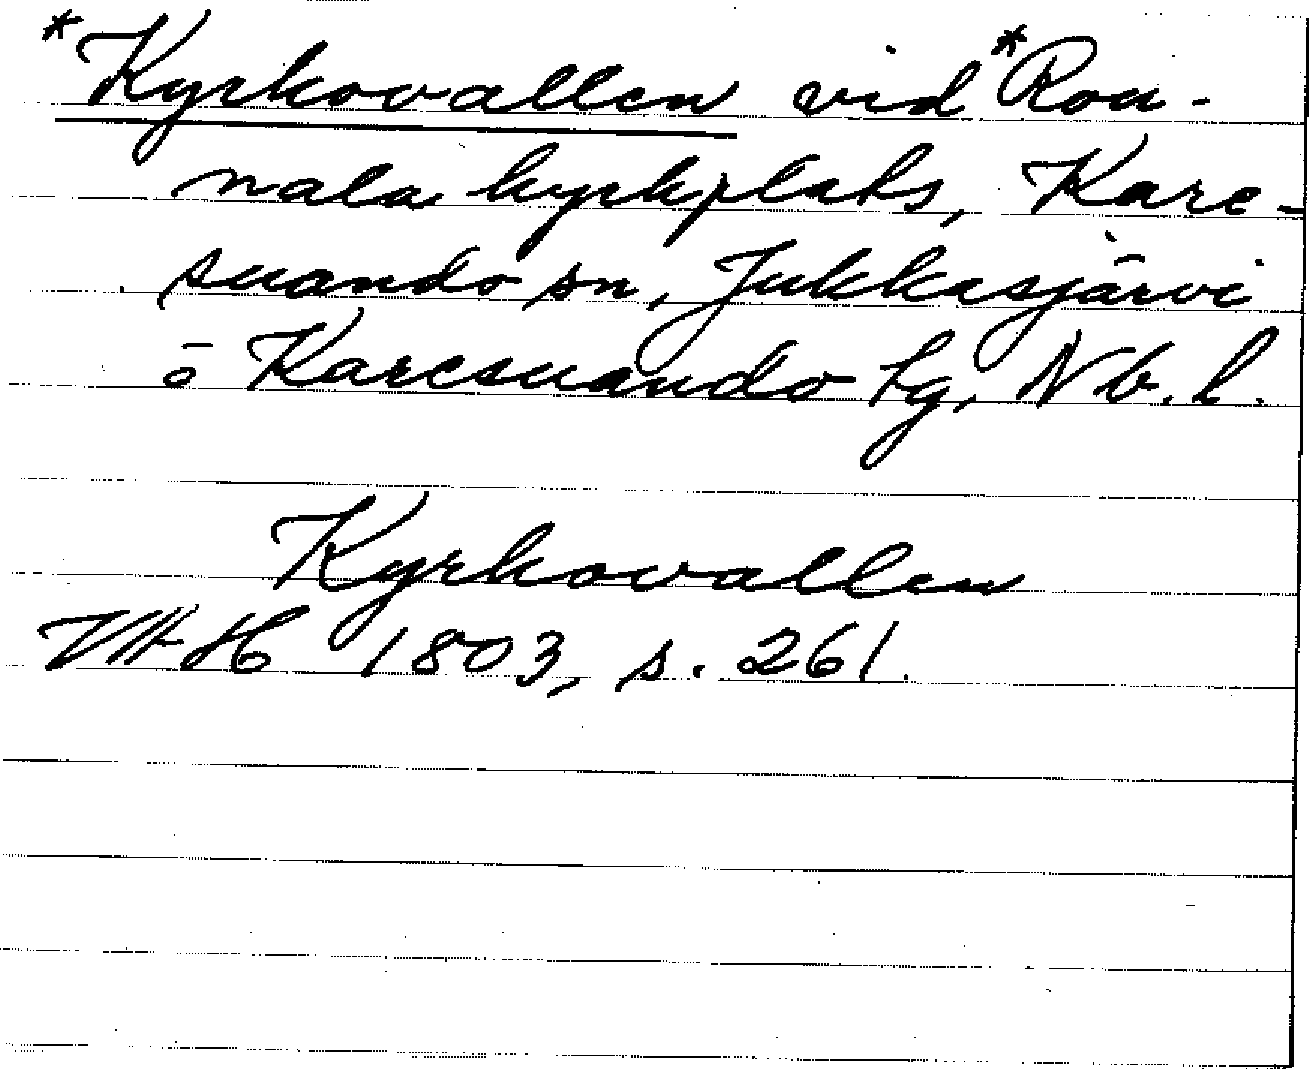 *Kyrkovallen vid *Rou-
nala kyrkplats, Kare-
suando sn, Jukkasjärvi
o Karesuando lg, Nb. l.
Kyrkovallen
1803, s. 261.